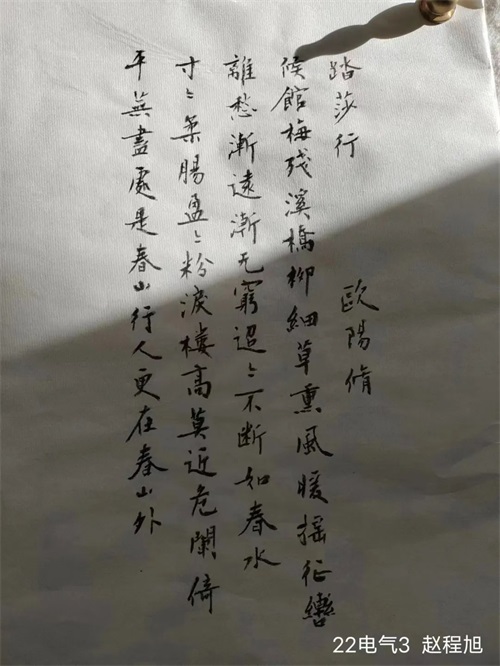 踏莎行 歐陽脩
候館梅残溪橋柳細草熏風暖搖征轡
離愁漸遠漸无窮迢〻不斷如春水
寸〻柔腸盈〻粉淚樓高莫近危闌倚
平蕪盡處是春山行人更在春山外
22电气3 赵程旭